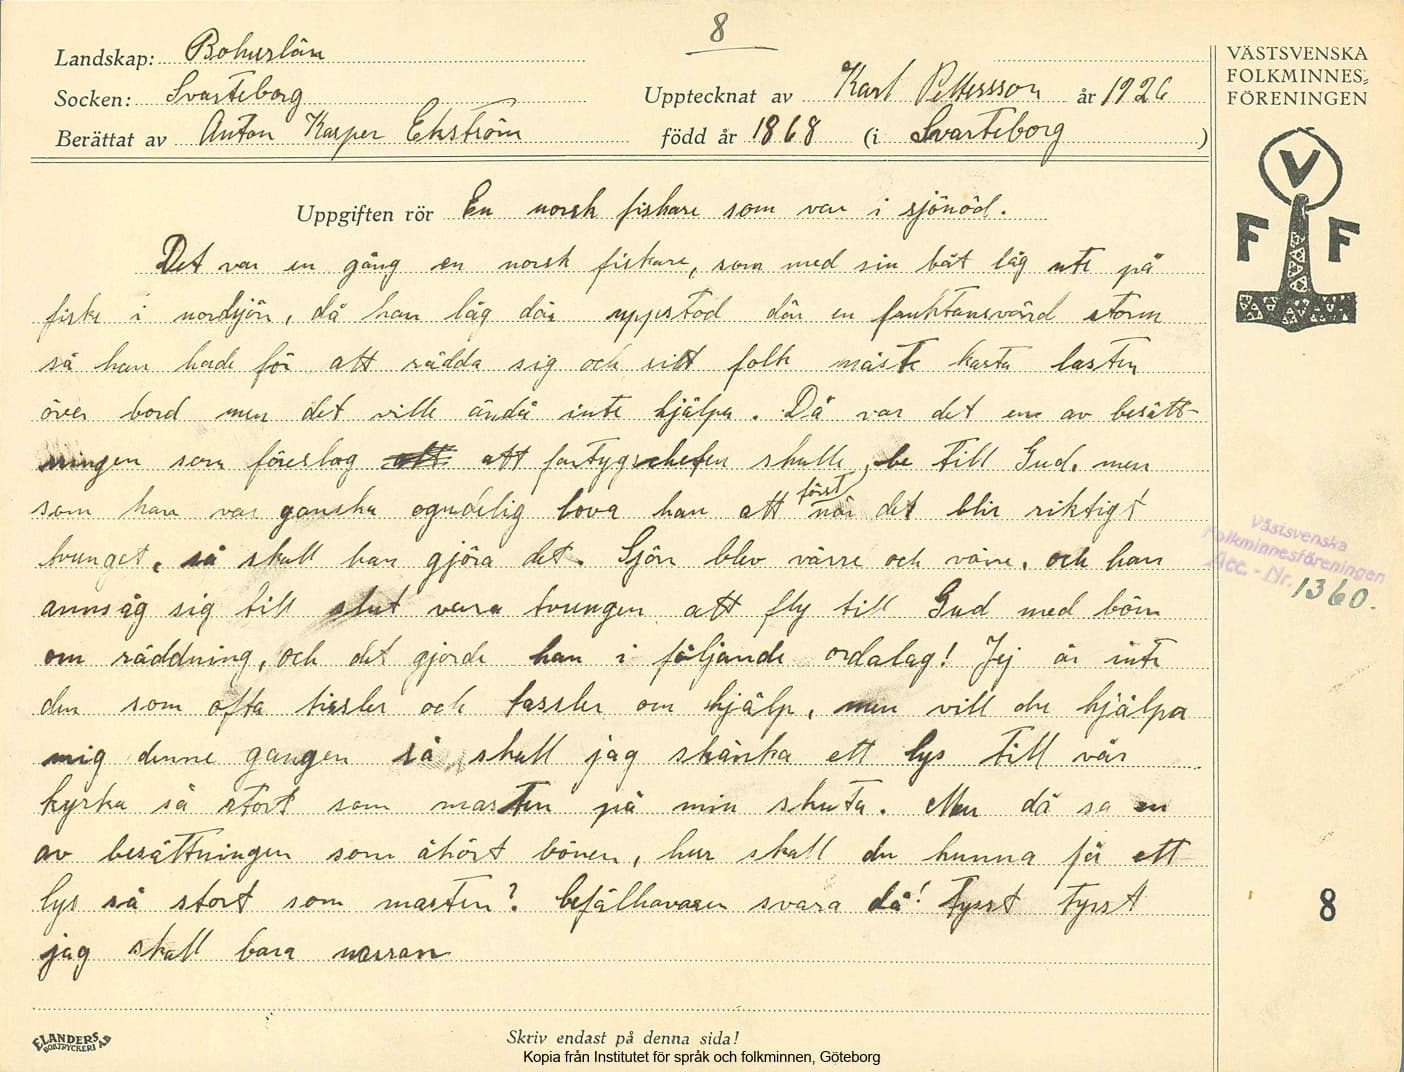 8
Landskap: Bohuslän
Socken: Svarteborg
Upptecknat av Karl Pettersson år 1926
Berättat av Anton Kasper Ekström född år 1868 (i Svarteborg)
VÄSTSVENSKA
FOLKMINNES-
FÖRENINGEN
V
F F
Uppgiften rör En norsk fiskare som var i sjönöd.
Det var en gång en norsk fiskare, som med sin båt låg ute på
fiske i nordsjön, då han låg där uppstod där en fruktansvärd storm
så han hade för att rädda sig och sitt folk måste kasta lasten
över bord men det ville ändå inte hjälpa. Då var det en av besätt-
ningen som föreslog att fartygschefen skulle be till Gud. men
som han var ganska ogudelig lova han att först när det blir riktigt
tvunget, så skall han gjöra det. Sjön blev värre och värre, och han
annsåg sig till slut vara tvungen att fly till Gud med bön
om räddning, och det gjorde han i följande ordalag! Jej är inte
den som ofta tissler och tassler om hjälp, men vill du hjälpa
mig denne gangen så skall jag skänka ett lys till vår
kyrka så stort som masten på min skuta. Men då sa en
av besättningen som åhört bönen, hur skall du kunna få ett
lys så stort som masten? befälhavaren svara då! tysst tysst
jag skall bara narran
Västsvenska
Folkminnesföreningen
Acc. - Nr. 1360.
8
ELANDERS
BOKTRYCKERI AB
Skriv endast på denna sida!
Kopia från Institutet för språk och folkminnen, Göteborg